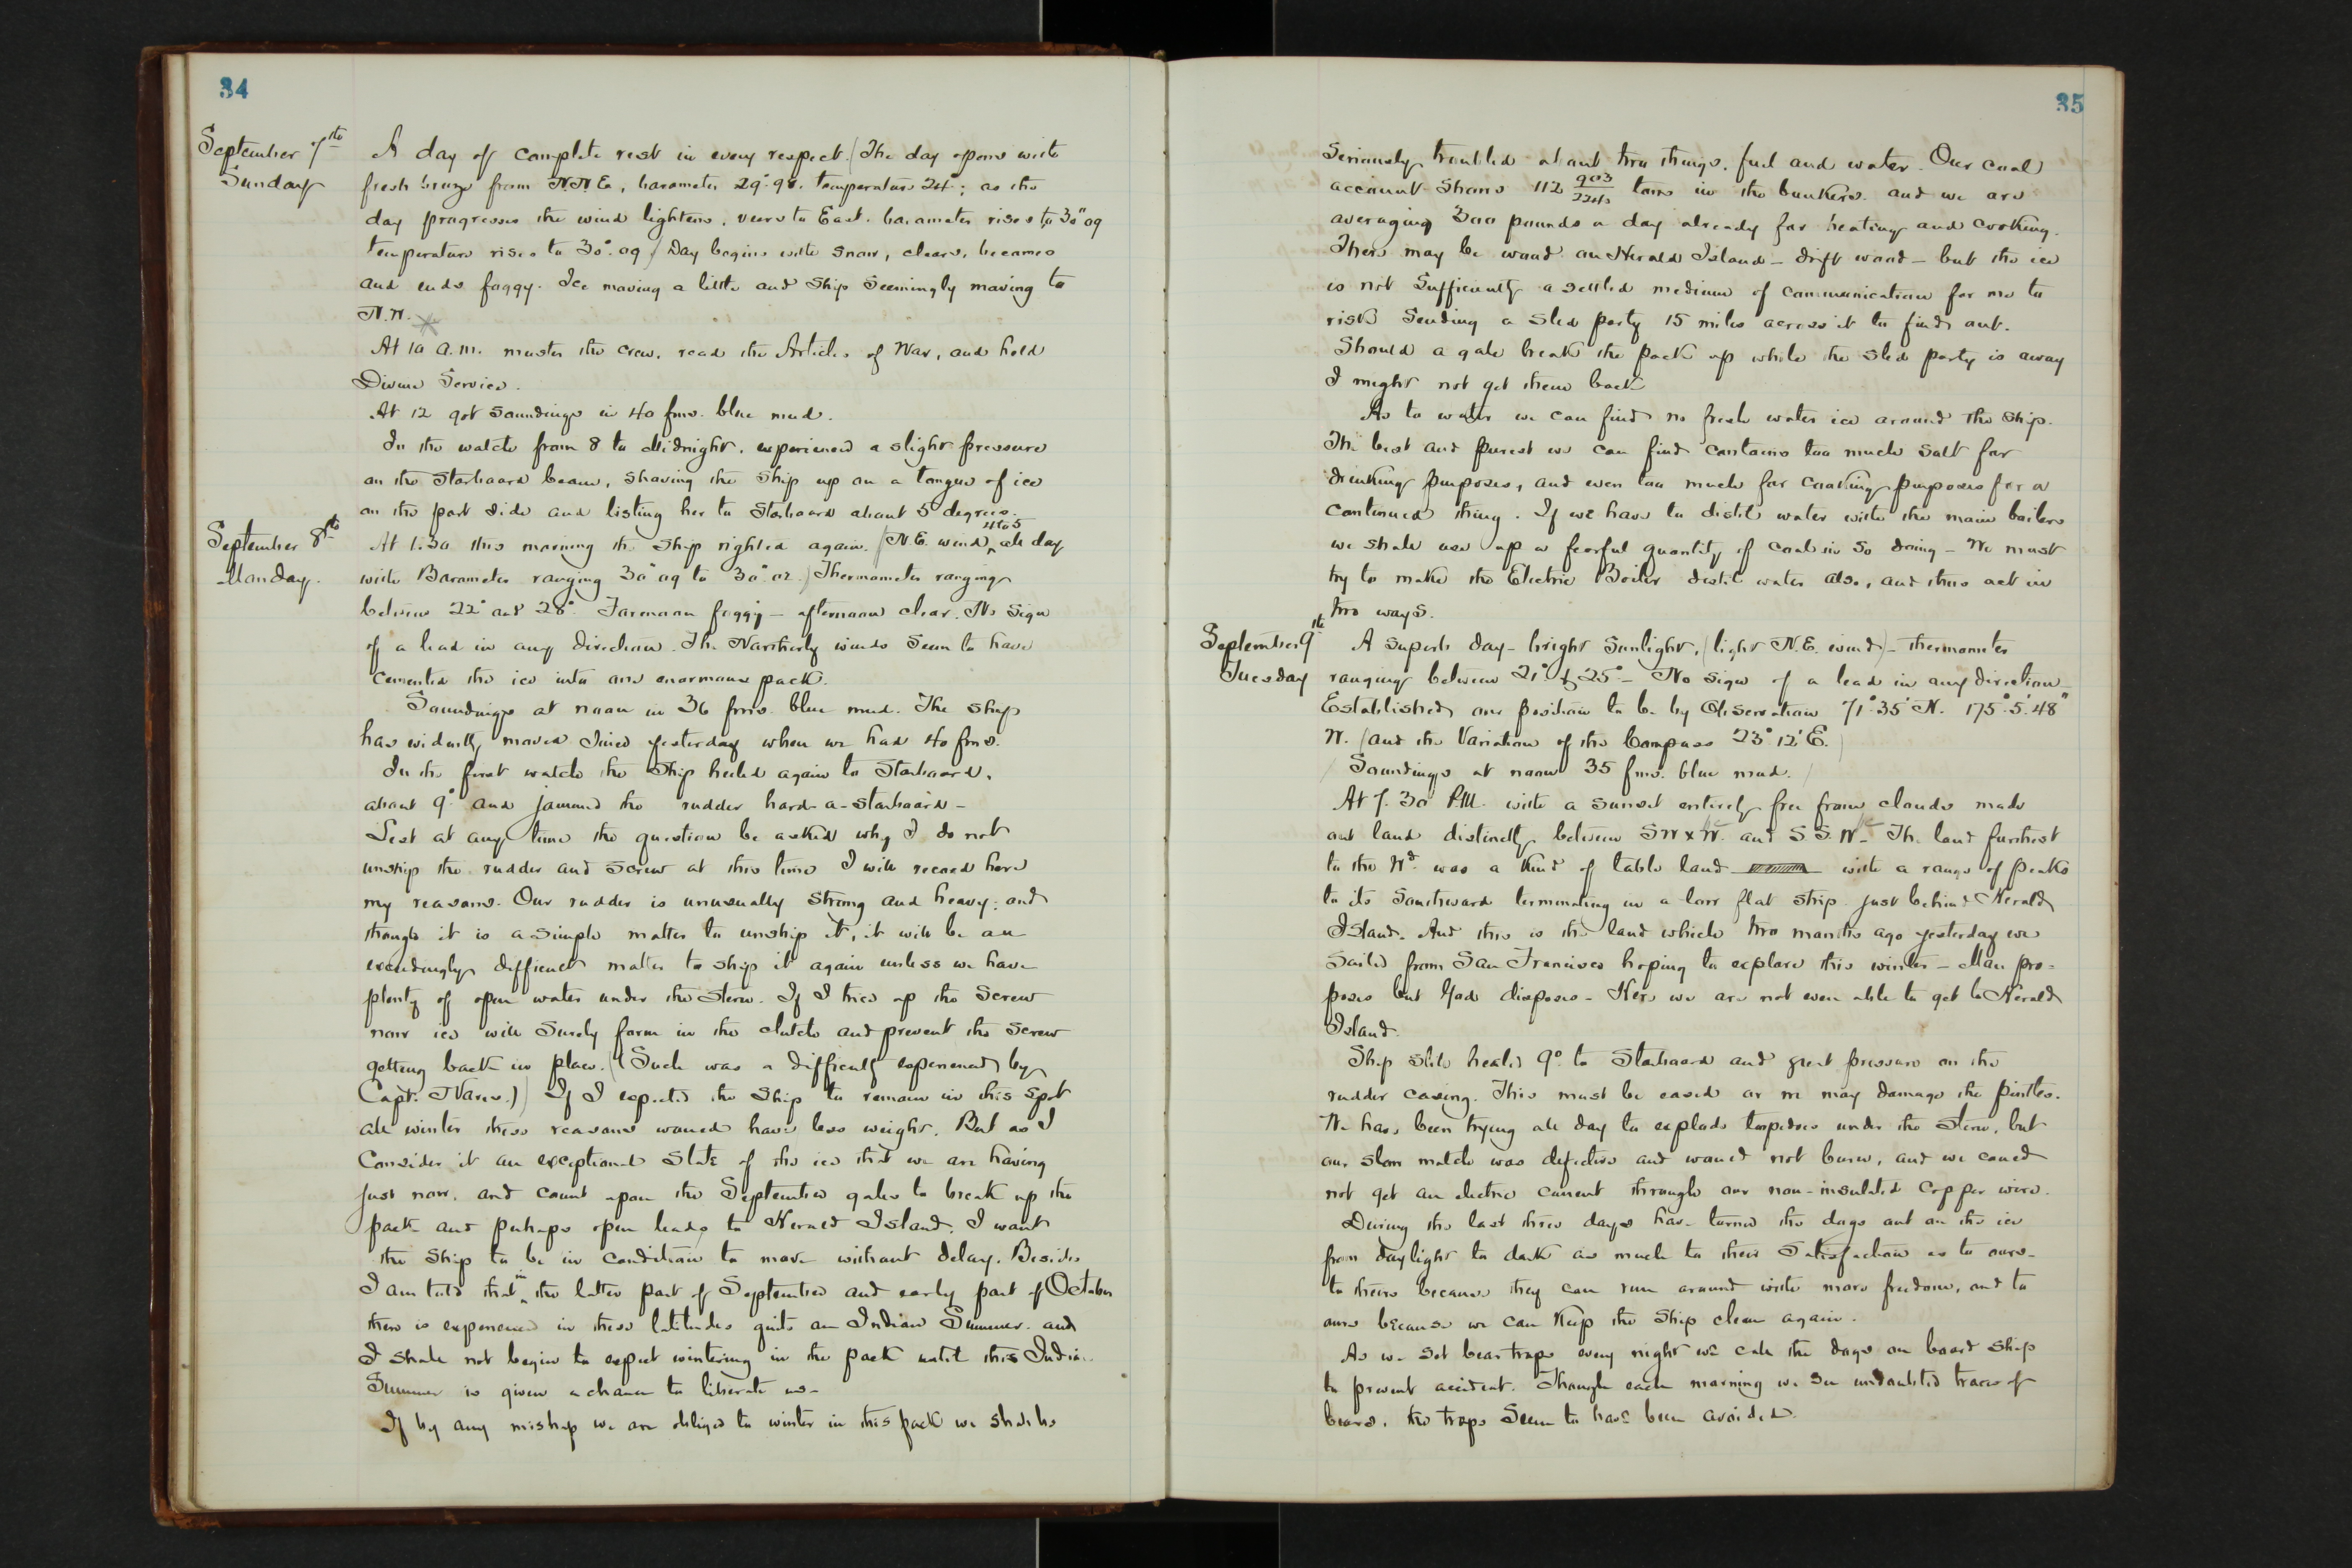 34
September 7th
Sunday
A day of complete rest in every respect. (The day opens with
fresh breeze from N.N.E., barometer 29°.98. temperature 24°; as the
day progresses the wind lightens, veers to East. barometer rises to 30".09
temperature rises to 30°.09) Day begins with snow, clears, becomes
and ends foggy. Ice moving a little and Ship Seemingly moving to
N.W.
At 10 a.m. muster the crew, read the Articles of War, and hold
Divine Service.
At 12 got soundings in 40 fms. blue mud.
In the watch from 8 to Midnight, experienced a slight pressure
on the Starboard beam, shoving the Ship up on a tongue of ice
on the port side and listing her to Starboard about 5 degrees.
September 8th
Monday.
At 1.30 this morning the Ship righted again. (N.E. wind 4 to 5 all day
with Barometer ranging 30".09 to 30".02.) Thermometer ranging
between 22° and 28°. Forenoon foggy - afternoon clear. No sign
of a lead in any direction. The Northerly winds Seem to have
cemented the ice into one enormous pack.
Soundings at noon in 36 fms. blue mud. The ship
has evidently moved since yesterday when we had 40 fms.
In the first watch the Ship heeled again to Starboard,
about 9° and jammed the rudder hard-a-starboard -
Lest at any time the question be asked why I do not
unship the rudder and screw at this time I will record here
my reasons. Our rudder is unusually strong and heavy; and
though it is a simple matter to unship it, it will be an
exceedingly difficult matter to ship it again unless we have
plenty of open water under the Stern. If I trice up the Screw
now ice will Surely form in the clutch and prevent the Screw
getting back in place. ((Such was a difficulty experienced by
Capt. Nares.)) If I expected the Ship to remain in this Spot
all winter these reasons would have less weight. But as I
Consider it an exceptional State of the ice that we are having
just now, and count upon the September gales to break up the
pack and perhaps open leads to Herald Island, I want
the Ship to be in condition to move without delay. Besides
I am told that in the latter part of September and early part of October
there is experienced in these latitudes quite an Indian Summer. and
I shall not begin to expect wintering in the pack until this Indian
Summer is given a chance to liberate us -
If by any mishap we are obliged to winter in this pack we shall be
35
Seriously troubled about two things, fuel and water. Our coal
account shows 112 903/2240 tons in the bunkers. and we are
averaging 300 pounds a day already for heating and cooking.
There may be wood on Herald Island - drift wood - but the ice
is not Sufficiently a settled medium of communication for me to
risk Sending a Sled party 15 miles across it to find out.
Should a gale break the pack up while the sled party is away
I might not get them back
As to water we can find no fresh water ice around the Ship.
The best and purest we can find contains too much salt for
drinking purposes, and even too much for cooking purposes for a
continued thing. If we have to distil water with the main boilers
we shall use up a fearful quantity of coal in so doing - We must
try to make the Electric Boiler distil water also, and thus act in
two ways.
September 9th
Tuesday
A superb day - bright Sunlight, (light N.E. wind) - thermometer
ranging between 21° & 25° - No sign of a lead in any direction -
Established our position to be by Observation 71°.35' N. 175°.5'.48"
W. (and the Variation of the Compass 23° 12' E.)
(Soundings at noon 35 fms. blue mud.)
At 7.30 P.M. with a sunset entirely free from clouds made
out land distinctly between SW x W. and S.S.W. - The land furthest
to the Wd. was a kind of table land with a range of peaks
to its Southward terminating in a low flat strip just behind Herald
Island. And this is the land which two months ago yesterday we
Sailed from San Francisco hoping to explore this winter - Man pro-
poses but God disposes - Here we are not even able to get to Herald
Island.
Ship still heeled 9° to Starboard and great pressure on the
rudder casing. This must be eased or we may damage the pintles.
We have been trying all day to explode torpedoes under the Stern, but
our slow match was defective and would not burn, and we could
not get an electric current through our non-insulated copper wire.
During the last three days have turned the dogs out on the ice
from daylight to dark as much to their Satisfaction as to ours -
to theirs because they can run around with more freedom, and to
ours because we can Keep the Ship clean again.
As we Set bear traps every night we call the dogs on board ship
to prevent accident. Though each morning we see undoubted traces of
bears, the traps Seem to have been avoided.